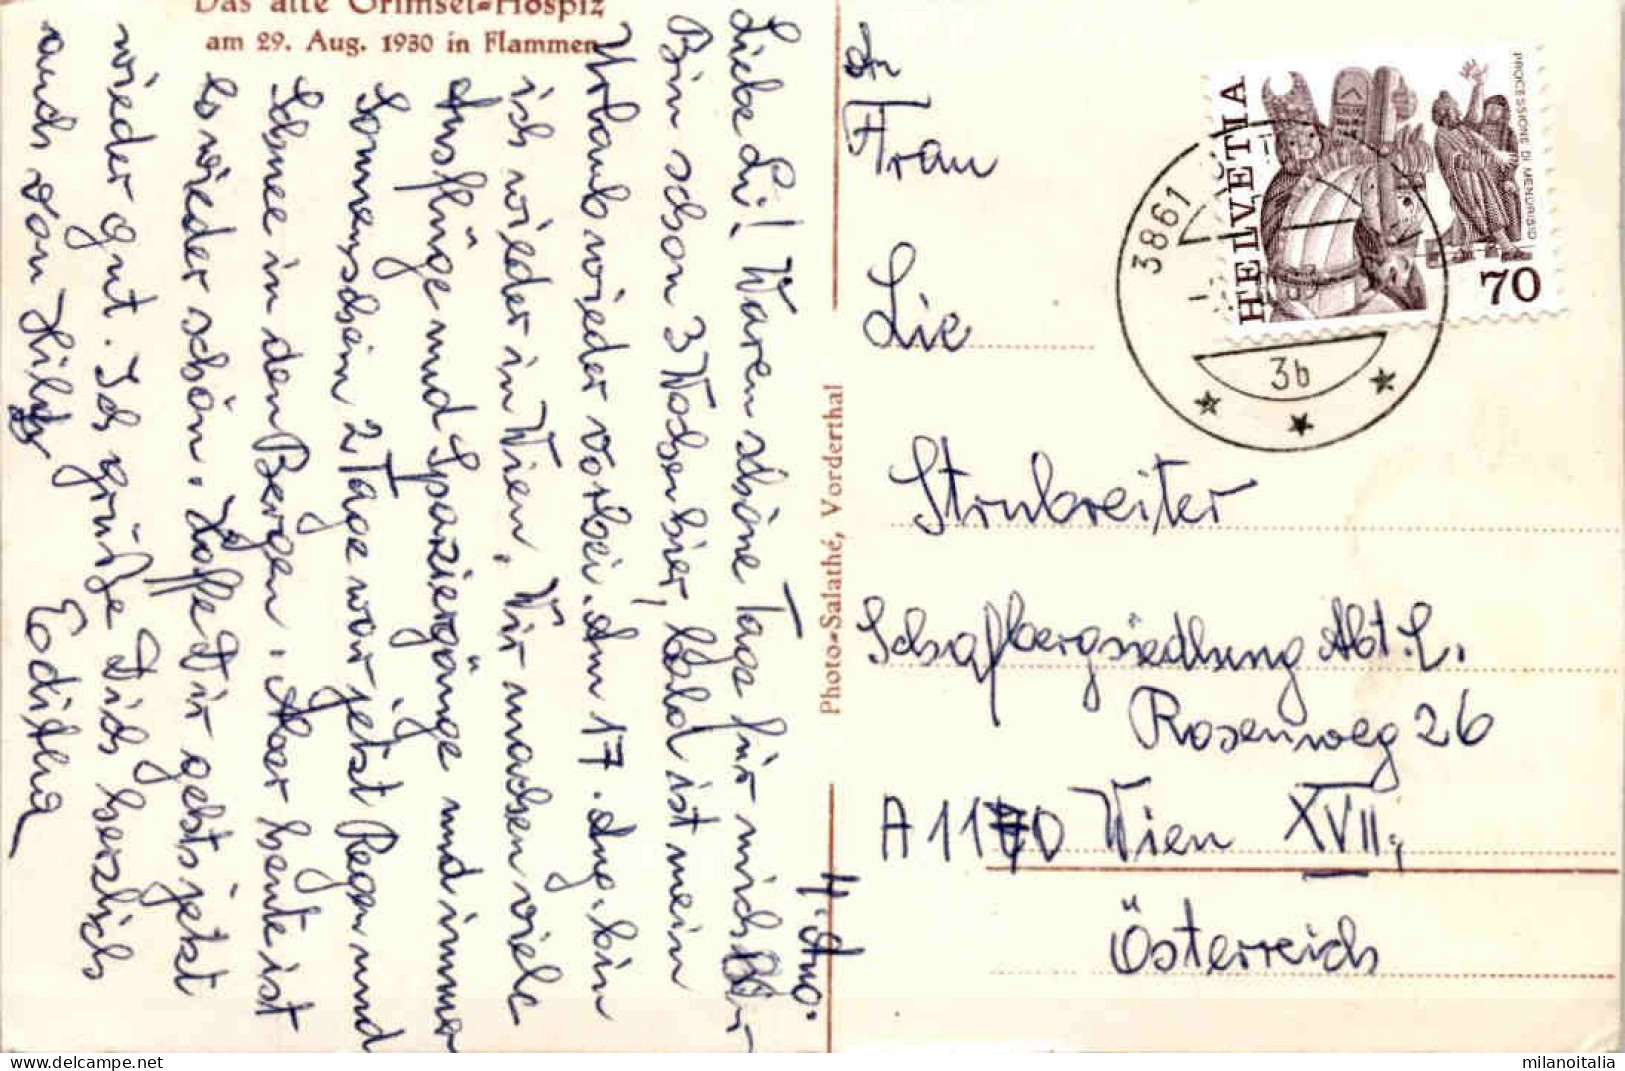 Das alte Grimsel-Hospiz
am 29. Aug. 1930 in Flammen
4. Aug.
Liebe Li! Waren schöne Tage für mich bei Dir
Bin schon 3 Wochen hier, bald ist mein
Urlaub wieder vorbei. Am 17. Aug. bin
ich wieder in Wien. Wir machen viele
Ausflüge und Spaziergänge und immer
Sonnenschein 2 Tage war jetzt Regen und
Schnee in den Bergen. Aber heute ist
es wieder schön. Hoffe Dir gehts jetzt
wieder gut. Ich grüße Dich herzlich
auch von Hilde
Editha
Photo-Salathé, Vorderthal
An
Frau
Lie
Strubreiter
Schafbergsiedlung Abt. L.
Rosenweg 26
A 1170 Wien XVII,
Österreich
HELVETIA
PROCESSIONE DI MENDRISIO
70
3861
3b
milanoitalia